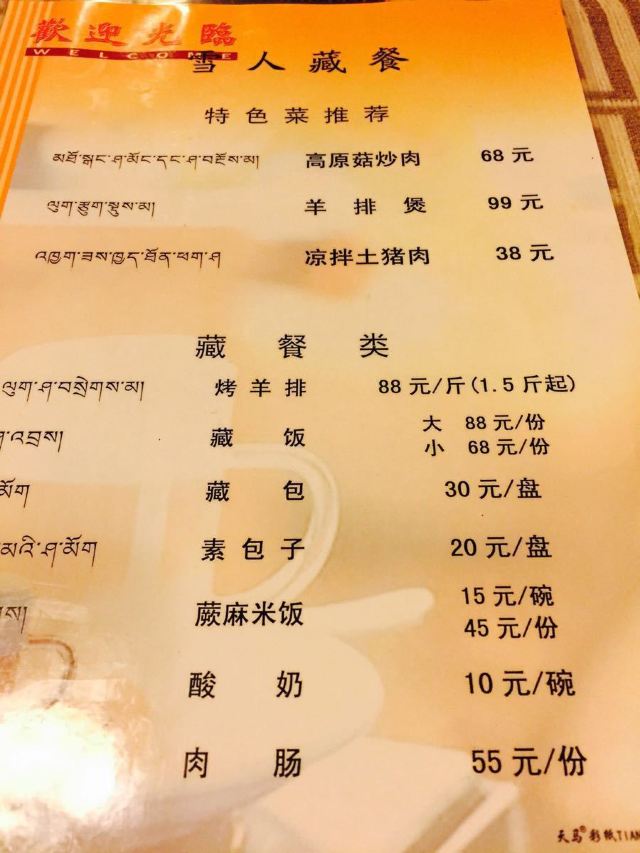 歡迎光臨
WELCOME
雪人藏餐
特色菜推荐
高原菇炒肉 68元
ལུག་རྩུག་སྡུས་མ། 羊排煲 99元
凉拌土猪肉 38元
藏餐类
ལུག་ཤ་བསྲེགས་མ། 烤羊排 88元/斤(1.5斤起)
藏饭 大 88元/份
小 68元/份
མོག 藏包 30元/盘
མའི་ཤ་མོག 素包子 20元/盘
蕨麻米饭 15元/碗
45元/份
酸奶 10元/碗
肉肠 55元/份
天马®彩纸TIAN